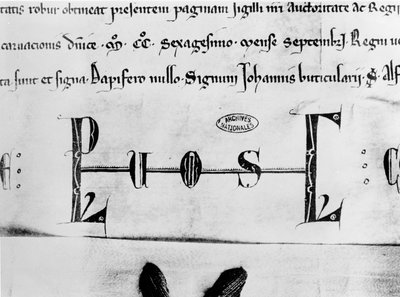 tatis robur obtineat presentem paginam sigilli nri Auctoritate ac Regii
carnacionis dnice · Mº · CCº · sexagesimo · mense septembri · Regni
ta sunt et signa · Dapifero nullo · Signum Johannis buticularii · S · Alf
ARCHIVES
NATIONALES
U O S